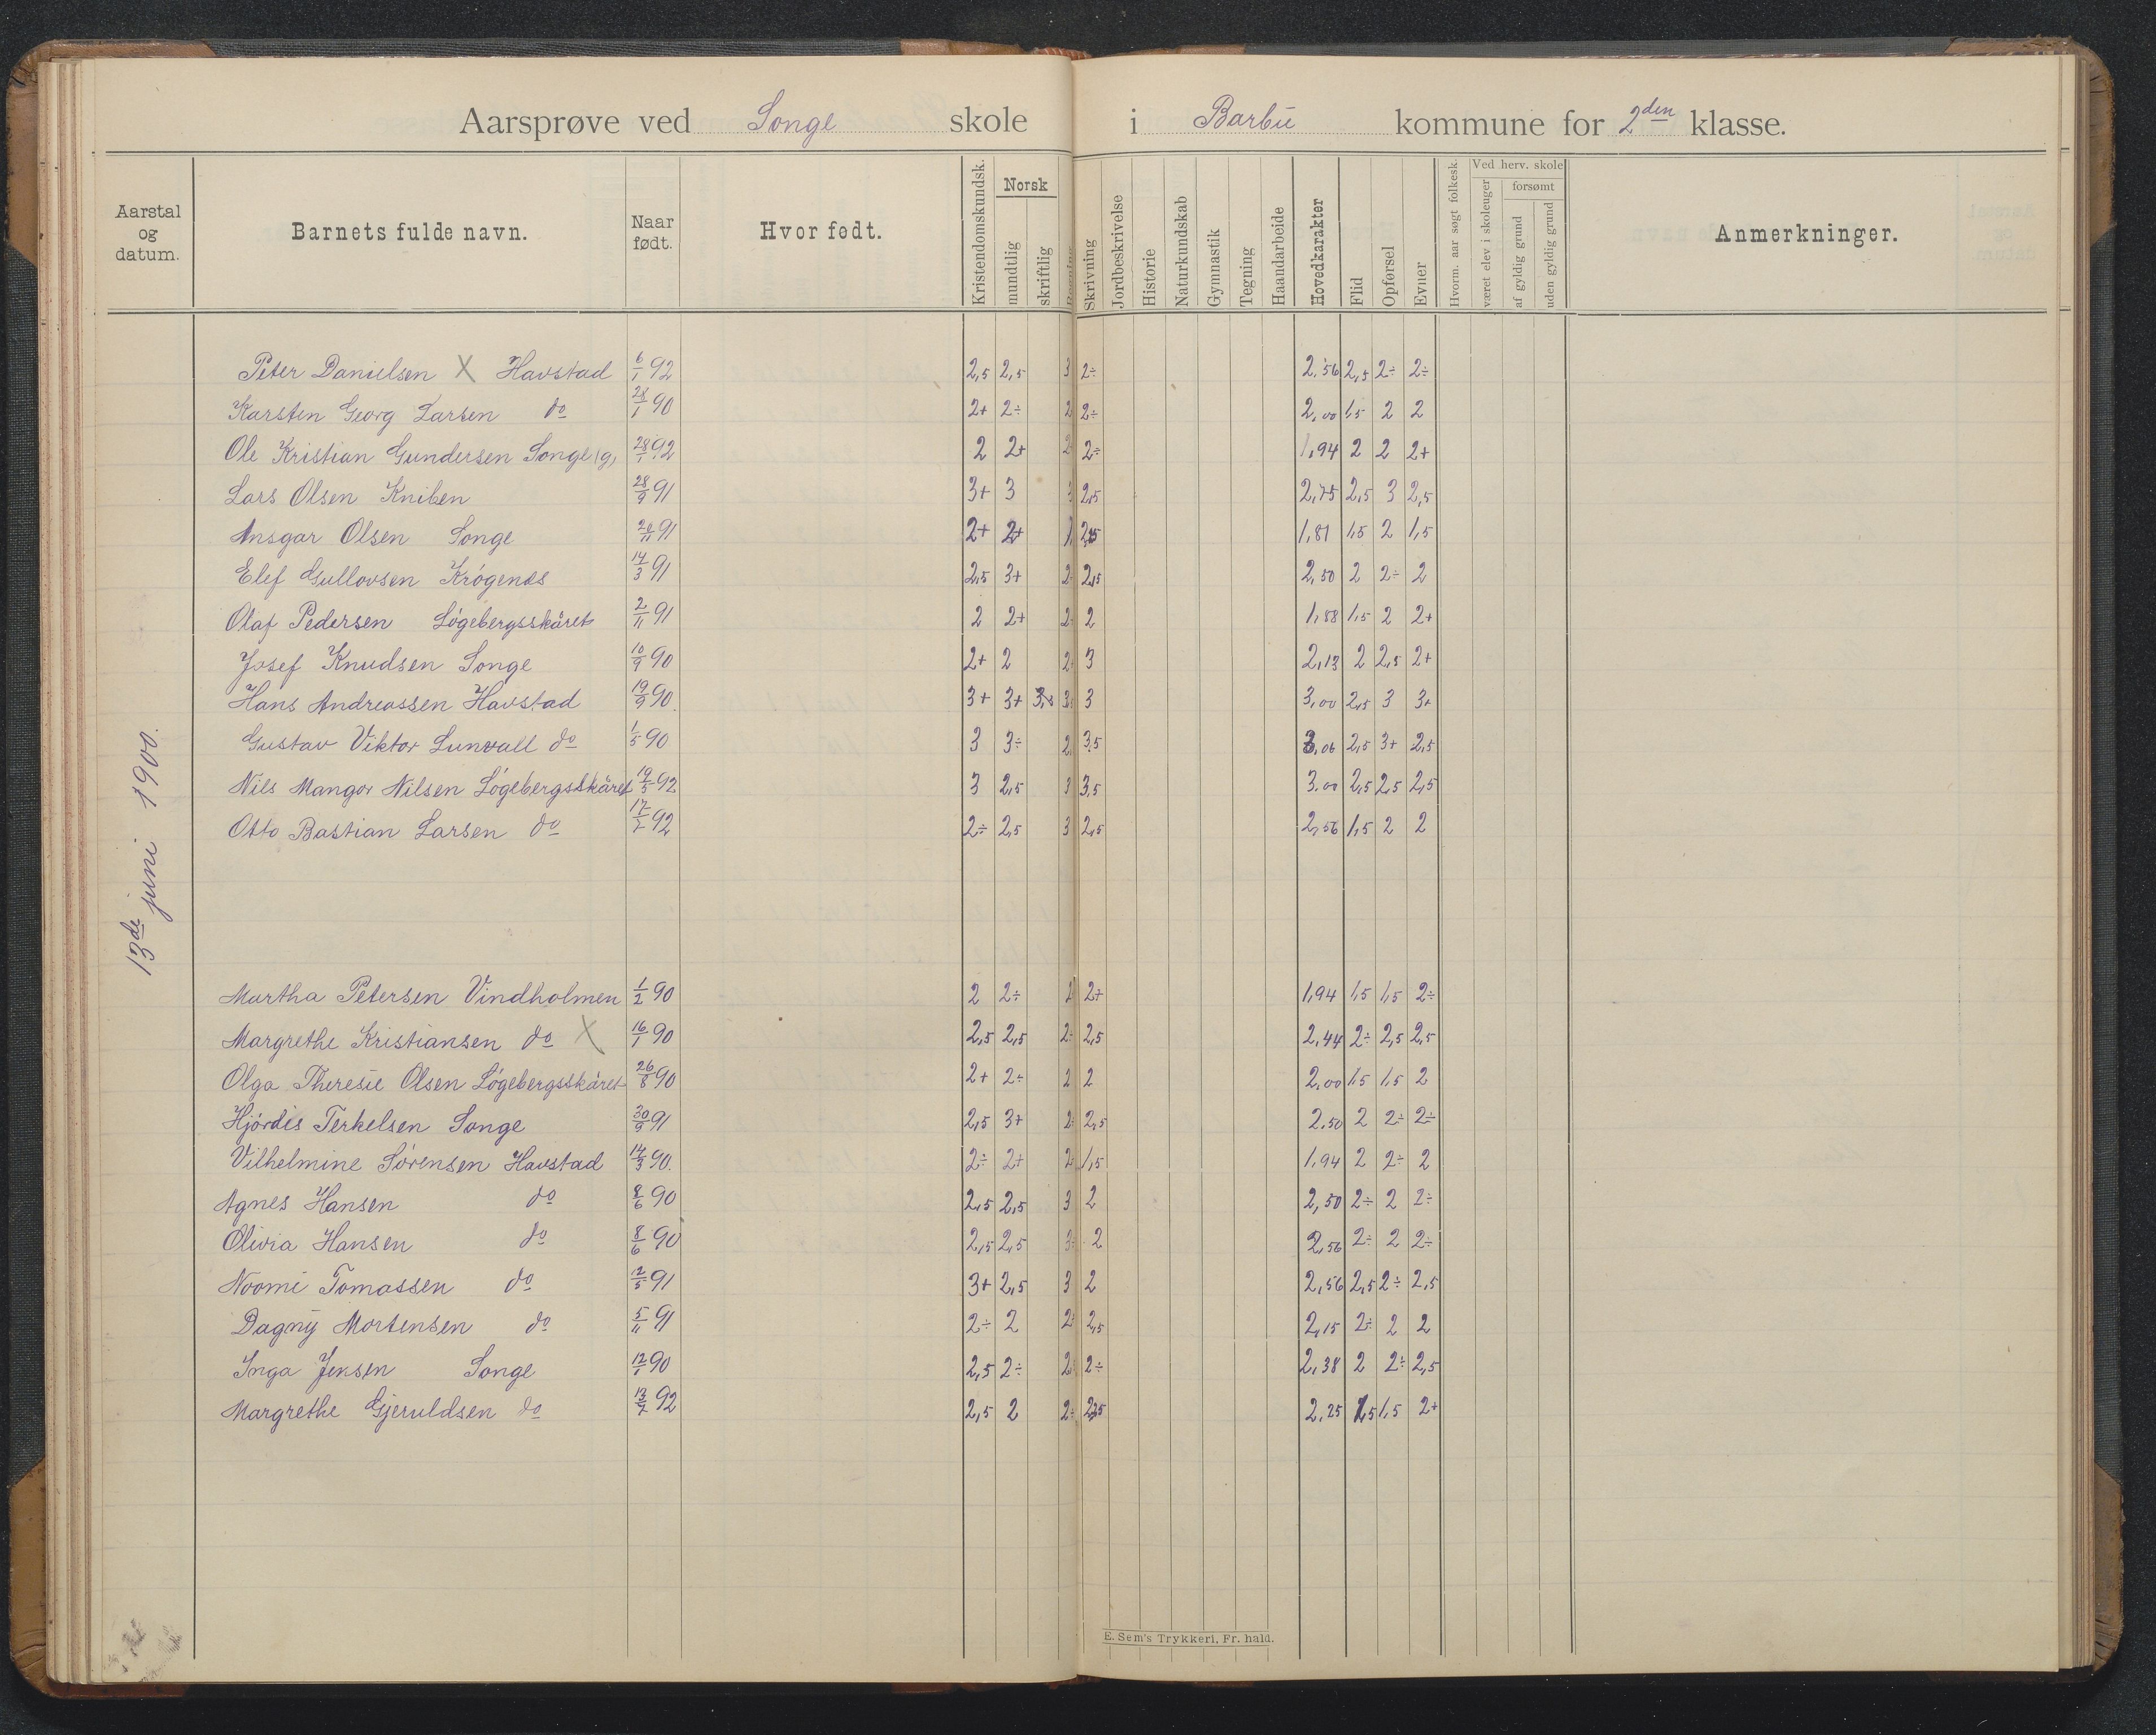 Aarsprøve ved Songe skole i Barbu kommune for 2den klasse.
Aarstal og datum. Barnets fulde navn. Naar født. Hvor født. Kristendomskundsk. Norsk mundtlig skriftlig Skrivning Jordbeskrivelse Historie Naturkundskab Gymnastik Tegning Haandarbeide Hovedkarakter Flid Opførsel Evner Hvorm. aar søgt folkesk. Ved herv. skole været elev i skoleuger forsømt af gyldig grund uden gyldig grund Anmerkninger.
13de juni 1900.
Peter Danielsen X Havstad 6/1 92 2,5 2,5 3 2÷ 2.56 2,5 2÷ 2÷
Karsten Georg Larsen do 28/1 90 2+ 2÷ 2 2÷ 2,00 1,5 2 2
Ole Kristian Gundersen Songe (g) 28/1 92 2 2+ 2 2÷ 1,94 2 2 2+
Lars Olsen Kniben 28/9 91 3+ 3 3 2,5 2,75 2,5 3 2,5
Ansgar Olsen Songe 91 2+ 2+ 1,81 1,5 2 1,5
Elef Gullovsen Krögenes 14/3 91 2,5 3+ 2 2,5 2,50 2 2÷ 2
Olaf Pedersen Lögebergsskäret 2/11 91 2 2+ 2 2 1,88 1,5 2 2+
Josef Knudsen Songe 10/9 90 2+ 2 2 3 2,13 2 2,5 2+
Hans Andreassen Havstad 19/9 90. 3+ 3+ 3 3 3,00 2,5 3 3+
Gustav Viktor Lunvall do 1/5 90 3 3÷ 2 3,5 3,06 2,5 3+ 2,5
Nils Mangor Nilsen Lögebergsskäret 19/5 92 3 2,5 3 3,5 3.00 2,5 2,5 2,5
Otto Bastian Larsen do 92 2÷ 2,5 3 2,5 2,56 1,5 2 2
Martha Petersen Vindholmen 1/2 90 2 2÷ 2 2+ 1,94 1,5 1,5 2÷
Margrethe Kristiansen do X 16/1 90 2,5 2,5 2÷ 2,5 2,44 2÷ 2,5 2,5
Olga Theresie Olsen Lögebergsskäret 26/8 90 2+ 2÷ 2 2 2,00 1,5 1,5 2
Hjördis Terkelsen Songe 30/9 91 2,5 3+ 2 2,5 2.50 2 2÷ 2÷
Vilhelmine Sörensen Havstad 14/3 90. 2÷ 2+ 2 1,5 1,94 2 2÷ 2
Agnes Hansen do 8/6 90 2,5 2,5 3 2 2,50 2÷ 2 2÷
Olivia Hansen do 8/6 90 2,5 2,5 3÷ 2 2,56 2÷ 2 2÷
Noomi Tomassen do 2/5 91 3+ 2,5 3 2 2,56 2,5 2÷ 2,5
Dagny Mortensen do 5/11 91 2÷ 2 2 2,5 2,15 2÷ 2 2
Inga Jensen Songe 12/1 90 2,5 2÷ 2 2÷ 2,38 2 2÷ 2,5
Margrethe Gjeruldsen do 92 2,5 2 2÷ 2,25 1,5 1,5 2+
E. Sem's Trykkeri, Fr. hald.